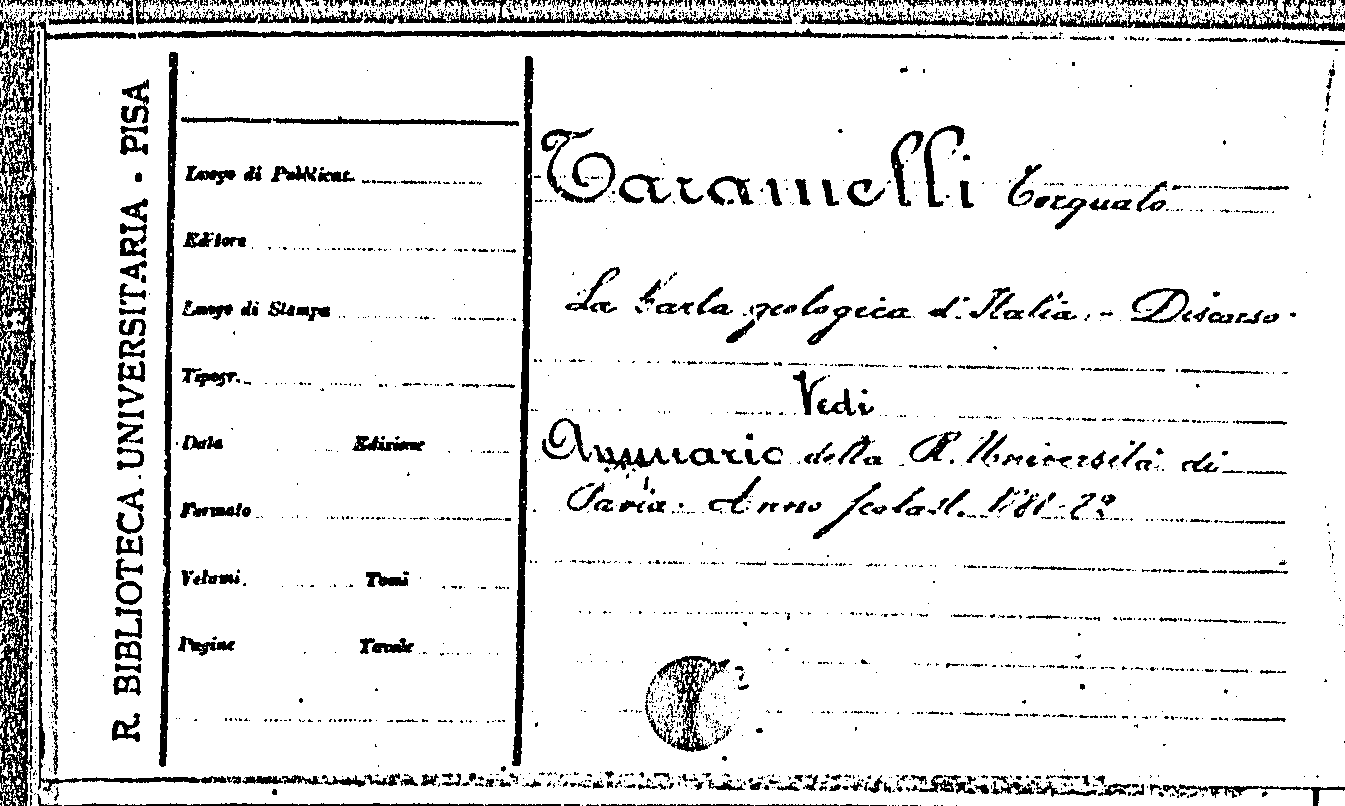 R. BIBLIOTECA UNIVERSITARIA - PISA
Luogo di Pubblicat.
Editore
Luogo di Stampa
Tipogr.
Data Edizione
Formato
Volumi Tomi
Pagine Tavole
Taramelli Torquato
La Carta geologica d'Italia. - Discorso.
Vedi
Annuario della R. Università di
Pavia. Anno scolast. 1881-82